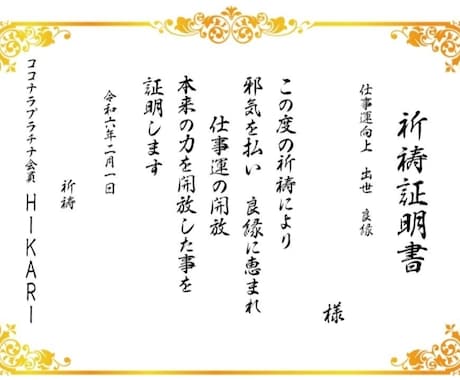 祈祷証明書
仕事運向上　出世　良縁
様
この度の祈祷により
邪気を払い　良縁に恵まれ
仕事運の開放
本来の力を開放した事を
証明します
令和六年二月一日
祈祷
ココナラプラチナ会員　HIKARI